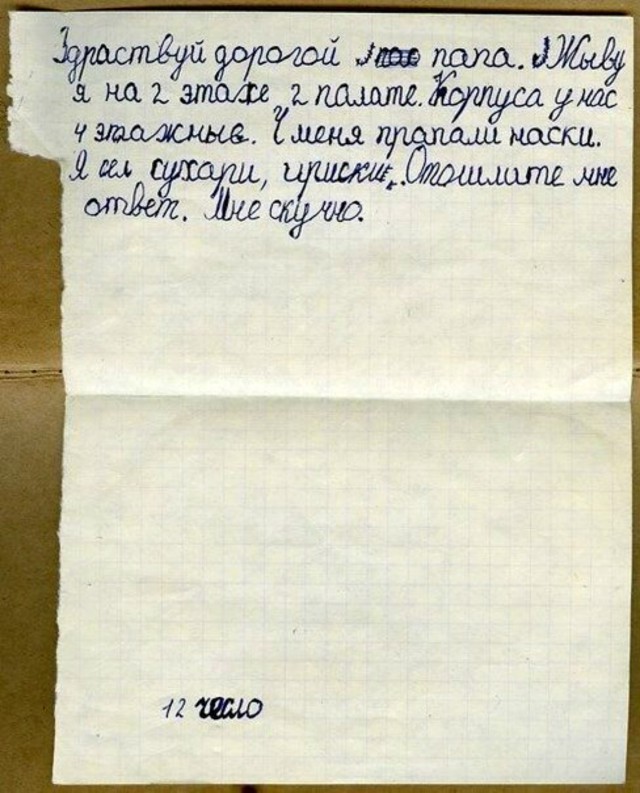 Здраствуй дорогой папа. Жыву
я на 2 этаже, 2 палате. Корпуса у нас
4 этажныв. У меня прапали наски.
Я ел сухари, ириски. Отошлате мне
ответ. Мне скучно.
12 число